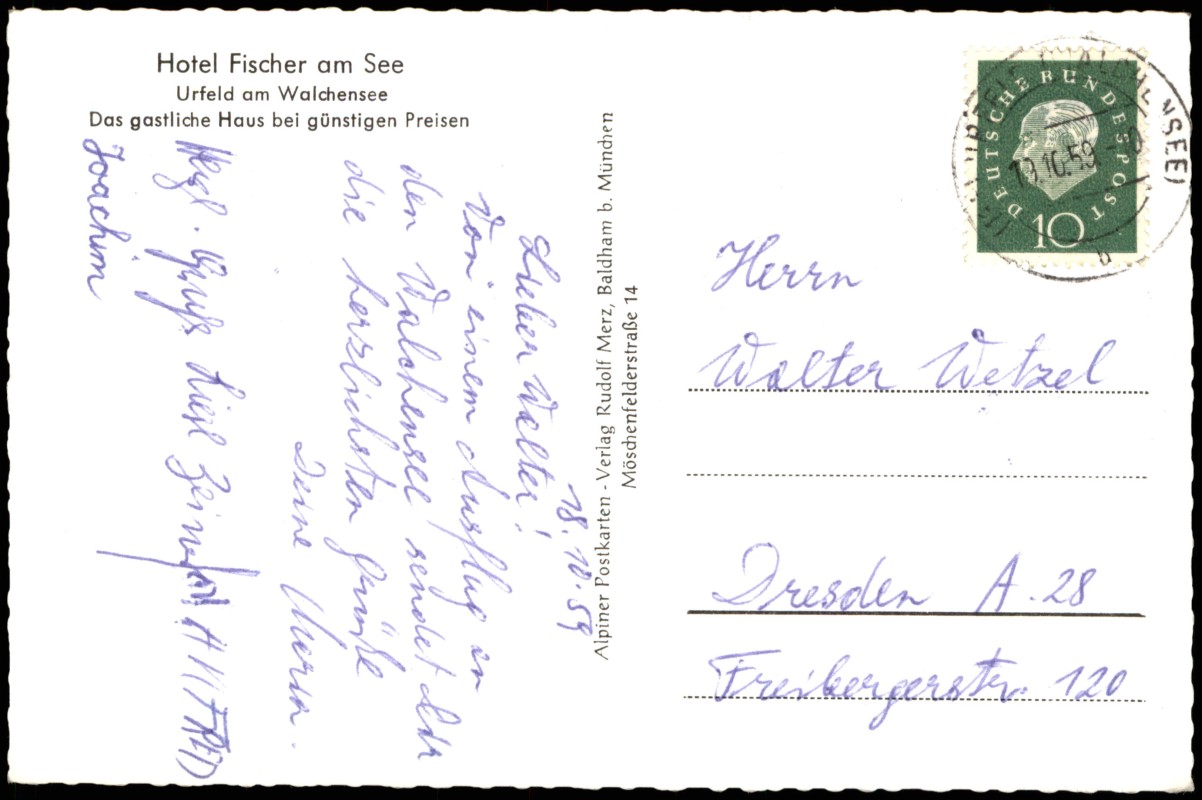 Hotel Fischer am See
Urfeld am Walchensee
Das gastliche Haus bei günstigen Preisen
Alpiner Postkarten - Verlag Rudolf Merz, Baldham b. München
Möschenfelderstraße 14
18.10.59
Lieber Walter!
Von einem Ausflug an
den Walchensee sendet Dir
die herzlichsten Grüße
Deine
Herzl. Gruß Liesl
MANFRED
Joachim
DEUTSCHE BUNDESPOST
10
URFELD (WALCHENSEE)
18.10.59
b
Herrn
Walter Wetzel
Dresden A. 28
Freibergerstr. 120